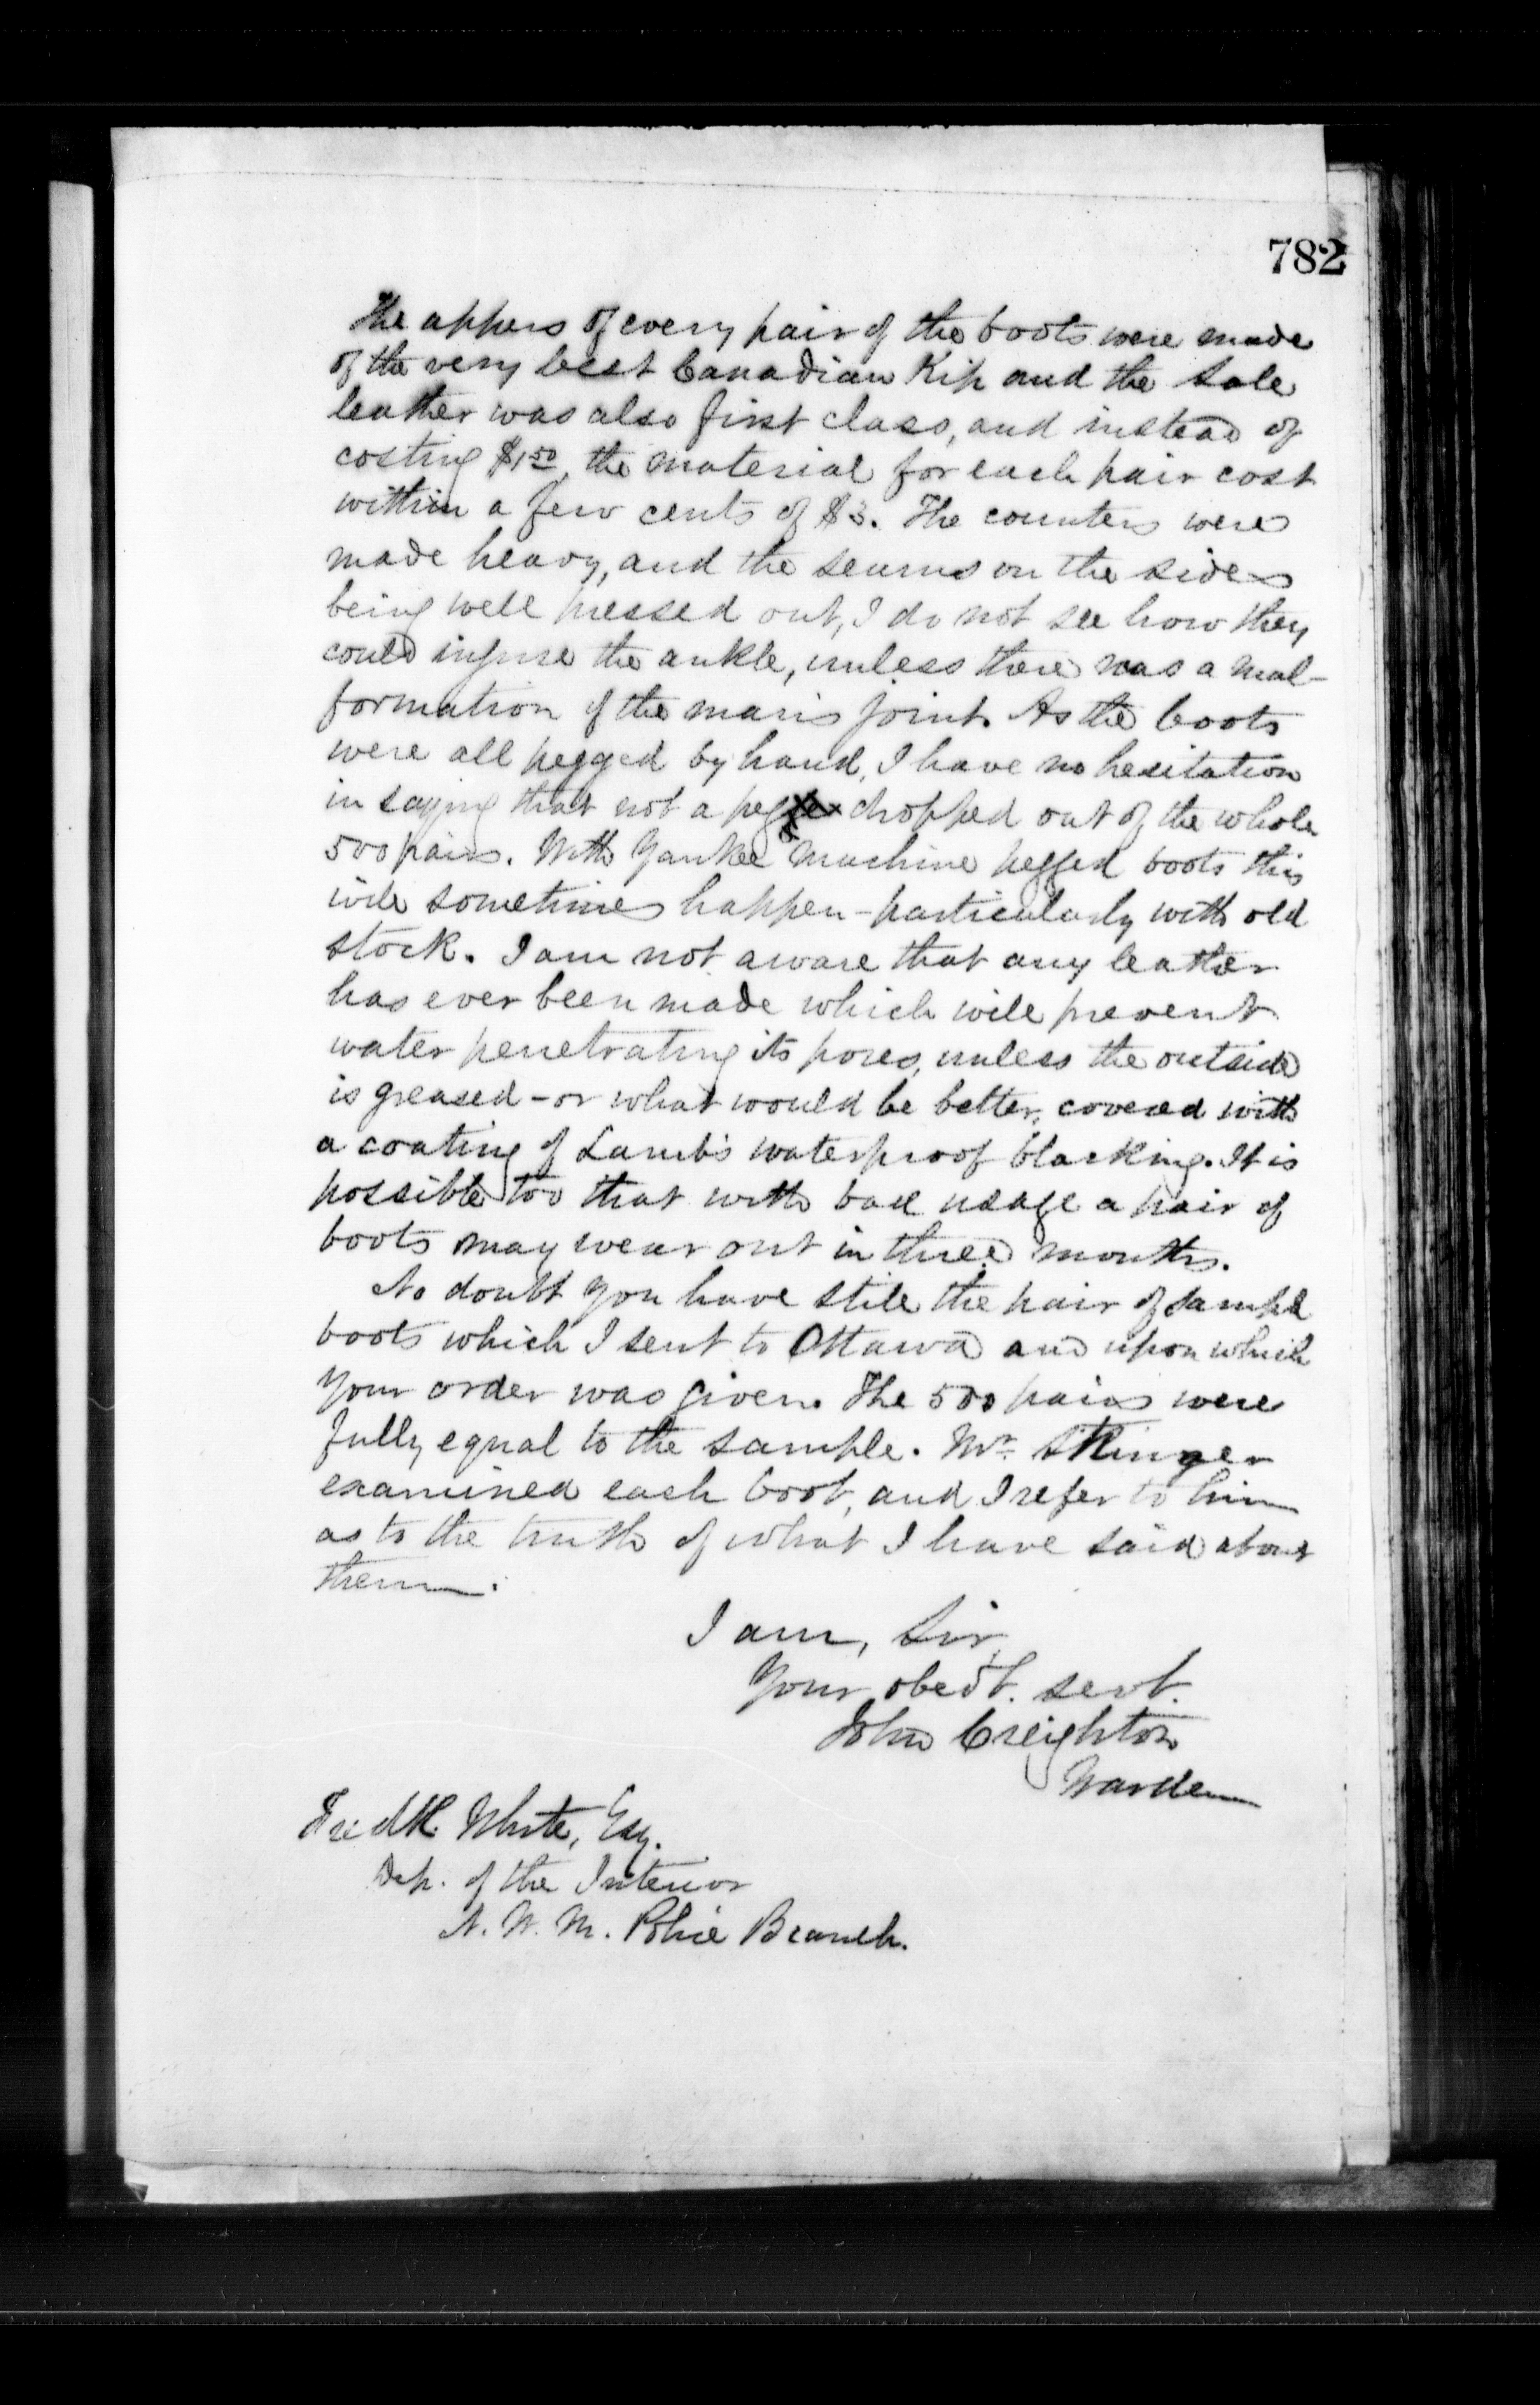 782
The uppers of every pair of the boots were made
of the very best Canadian Kip and the sole
leather was also first class, and instead of
costing $1.50, the material for each pair cost
within a few cents of $3. The counters were
made heavy, and the seams on the sides
being well pressed out, I do not see how they
could injure the ankle, unless there was a mal-
formation of the man's joint. As the boots
were all pegged by hand, I have no hesitation
in saying that not a peg dropped out of the whole
500 pairs. With Yankee machine pegged boots this
will sometimes happen - particularly with old
stock. I am not aware that any leather
has ever been made which will prevent
water penetrating its pores, unless the outside
is greased - or what would be better, covered with
a coating of Lamb's waterproof blacking. It is
possible too that with bad usage a pair of
boots may wear out in three months.
No doubt you have still the pair of sample
boots which I sent to Ottawa and upon which
your order was given. The 500 pairs were
fully equal to the sample. Mr.
examined each boot, and I refer to him
as to the truth of what I have said about
them.
I am, Sir,
Your obedt. servt.
John Creighton
Warden
Fredk. White, Esq.
Dep. of the Interior
N. W. M. Police Branch.